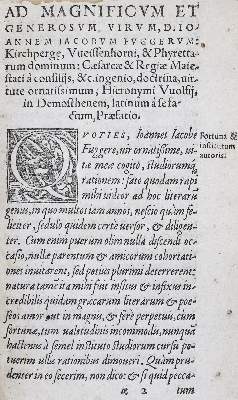 AD MAGNIFICVM ET
GENEROSVM, VIRVM, D. IO-
ANNEM IACOBVM FVGGERVM:
Kirchperge, Vueissenhorni, & Phyretta-
rum dominum: Cæsareæ & Regiæ Maie-
stati à consilijs, &c. ingenio, doctrina, uir-
tute ornatissimum, Hieronymi Vuolfij,
in Demosthenem, latinum à se fa-
ctum, Præfatio.
QVOTIES, Ioannes Iacobe
Fuggere, uir ornatissime, ui-
tæ meæ cogito, studiorumq́;
rationem: fato quodam rapi
mihi uideor ad hoc literarū
genus, in quo multos iam annos, nescio quàm fe-
liciter, sedulò quidem certè uersor, & diligen-
ter. Cum enim puerum olim nulla discendi oc-
casio, nullæ parentum & amicorum cohortati-
ones inuitarent, sed potius plurimi deterrerent:
natura tamen à mihi fuit insitus & infixus in-
credibilis quidem græcarum literarum & poë-
seos amor: ut in magna, & ferè perpetua, cum
fortunæ, tum ualetudinis incommodis, nunquā
hactenus à semel instituto studiorum cursu po-
tuerim ulla rationibus dimoueri. Quàm pru-
denter in eo fecerim, non dico: & si quid pecca-
a 2 tum
Fortuna &
institutum
autoris.